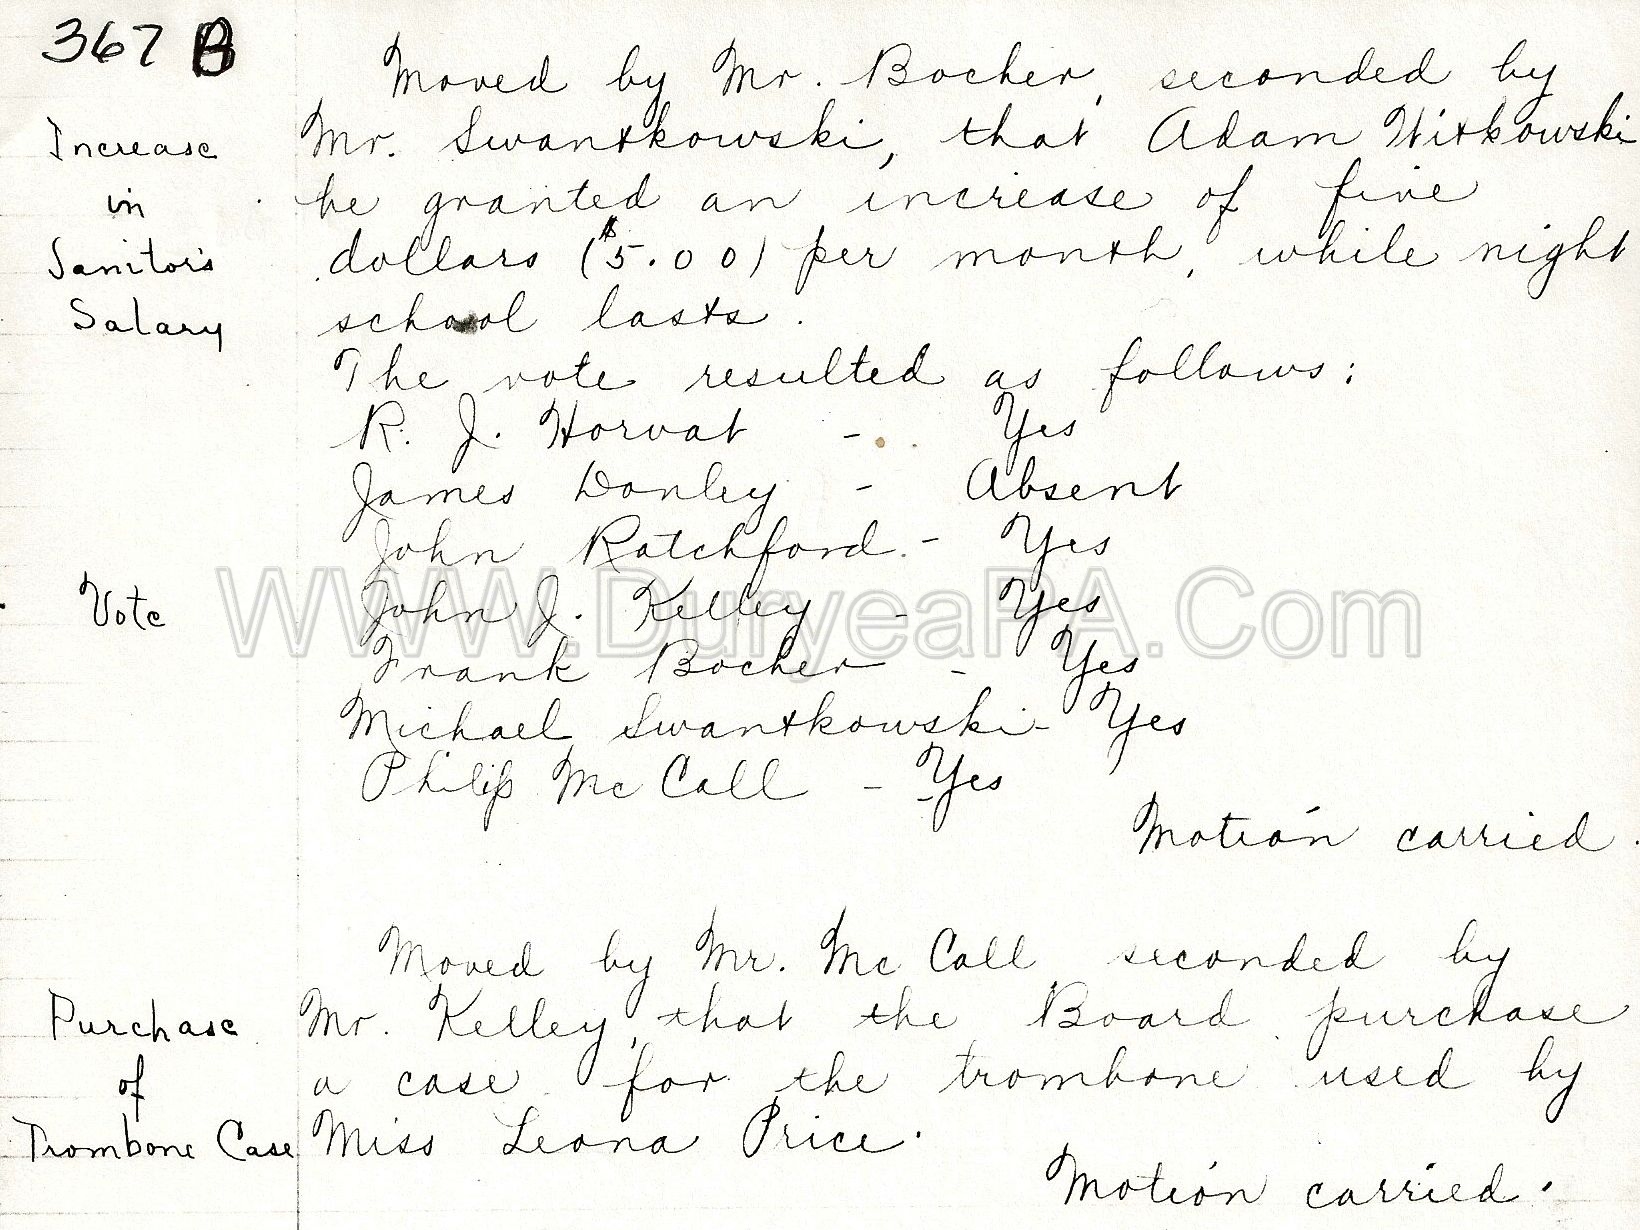 367 B
Moved by Mr. Bocher, seconded by
Increase Mr. Swantkowski, that Adam Witkowski
in be granted an increase of five
Janitor's dollars ($5.00) per month, while night
Salary school lasts.
The vote resulted as follows:
R. J. Horvat - Yes
James Donley - Absent
John Ratchford - Yes
Vote John J. Kelley - Yes
WWW.DuryeaPA.Com
Frank Bocher - Yes
Michael Swantkowski - Yes
Philip McCall - Yes
Motion carried.
Moved by Mr. McCall, seconded by
Purchase Mr. Kelley, that the Board purchase
of a case for the trombone used by
Trombone Case Miss Leona Price.
Motion carried.